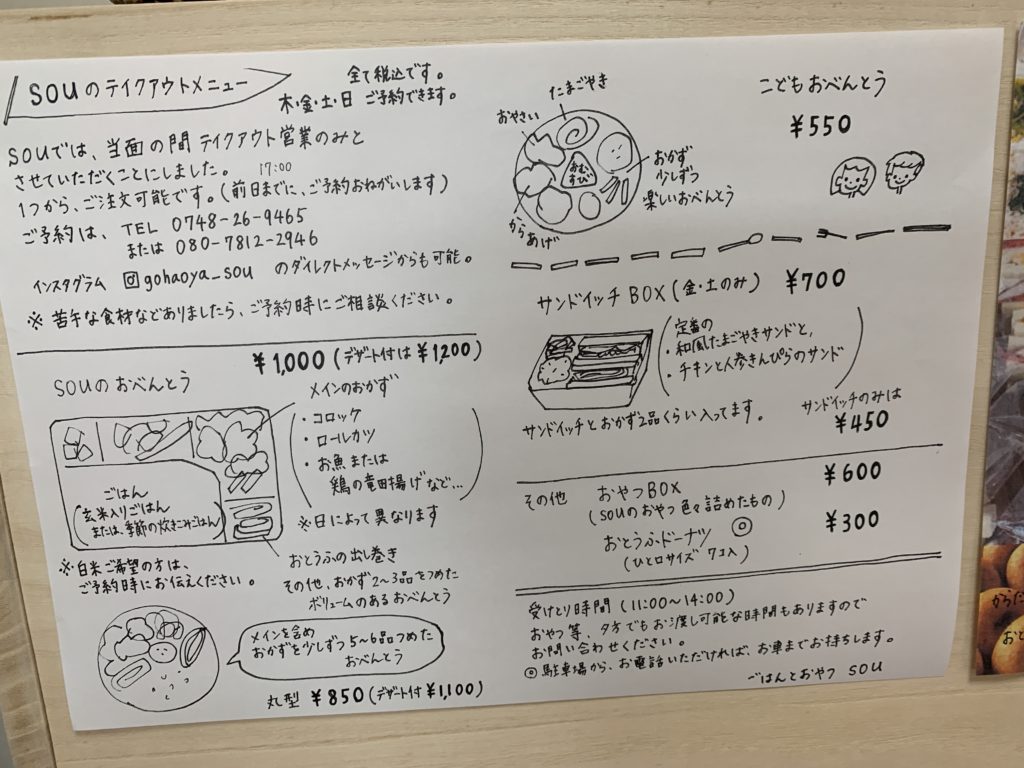 SOUのテイクアウトメニュー
全て税込です。
木・金・土・日 ご予約できます。
SOUでは、当面の間 テイクアウト営業のみと
させていただくことにしました。
17:00
1つから、ご注文可能です。(前日までに、ご予約おねがいします)
ご予約は、TEL 0748-26-9465
または 080-7812-2946
インスタグラム @gohaoya_sou のダイレクトメッセージからも可能。
※ 苦手な食材などありましたら、ご予約時にご相談ください。
SOUのおべんとう
¥1,000(デザート付は¥1,200)
メインのおかず
・コロッケ
・ロールカツ
・お魚または
鶏の竜田揚げなど…
※日によって異なります
ごはん
(玄米入りごはん
または、季節の炊きこみごはん)
※白米ご希望の方は、
ご予約時にお伝えください。
おとうふの出し巻き
その他、おかず2〜3品をつめた
ボリュームのあるおべんとう
メインを含め
おかずを少しずつ5〜6品つめた
おべんとう
丸型 ¥850(デザート付¥1,100)
こどもおべんとう
¥550
たまごやき
おやさい
おむすび
おかず
少しずつ
楽しいおべんとう
からあげ
サンドイッチBOX(金・土のみ) ¥700
定番の
・和風たまごやきサンドと、
・チキンと人参きんぴらのサンド
サンドイッチとおかず2品くらい入ってます。
サンドイッチのみは
¥450
その他 おやつBOX ¥600
(SOUのおやつ色々詰めたもの)
おとうふドーナツ ¥300
(ひと口サイズ 7コ入)
受けとり時間(11:00〜14:00)
おやつ等、夕方でもお渡し可能な時間もありますので
お問い合わせください。
◎駐車場から、お電話いただければ、お車までお持ちします。
ごはんとおやつ SOU